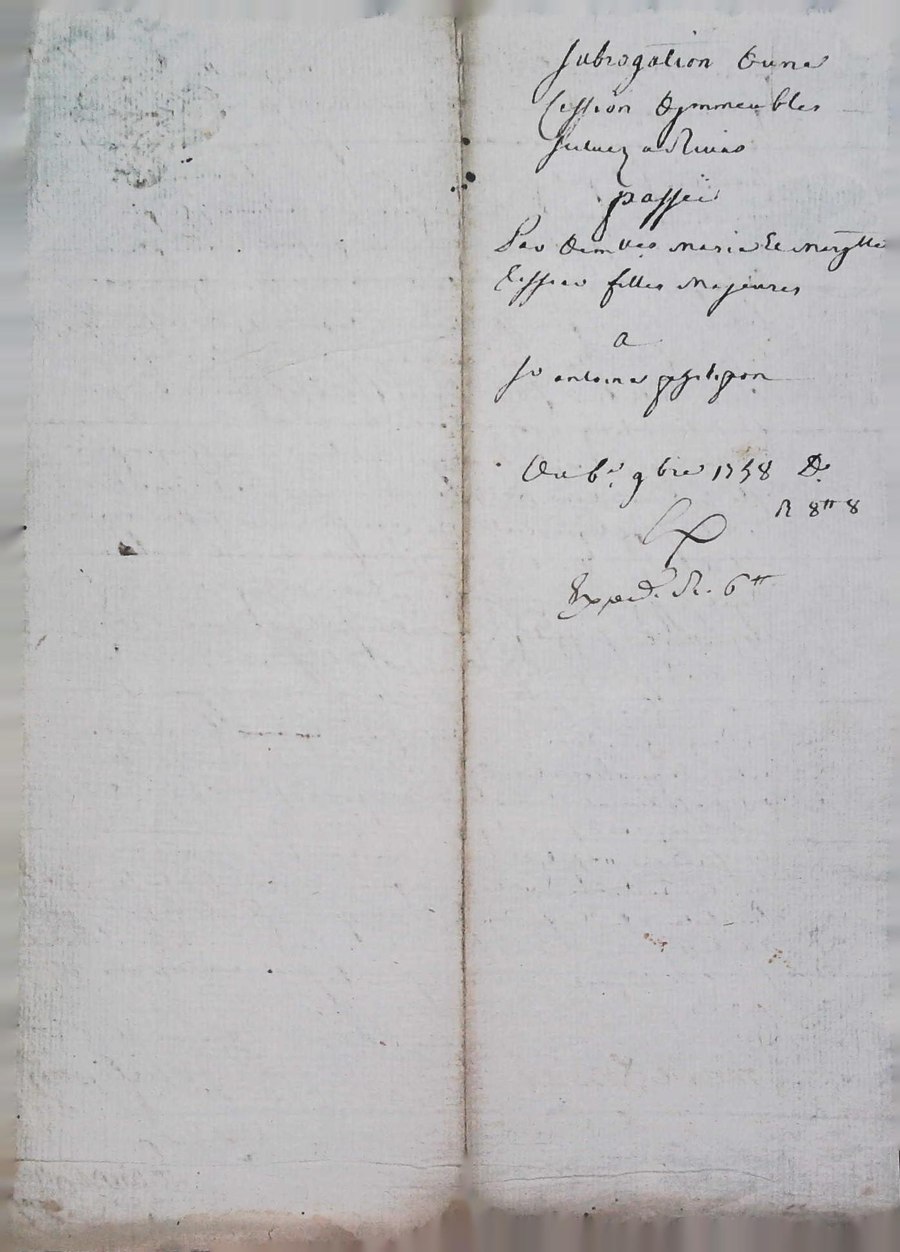 Subrogation d'une
Cession d'immeubles
scituez a Rives
passée
Par demlles Marie Et Margtte
Teissier filles Majeures
a
Sr antoine philipon
Du 6e 9bre 1758 De
R 8tt 8
Exped. R. 6tt